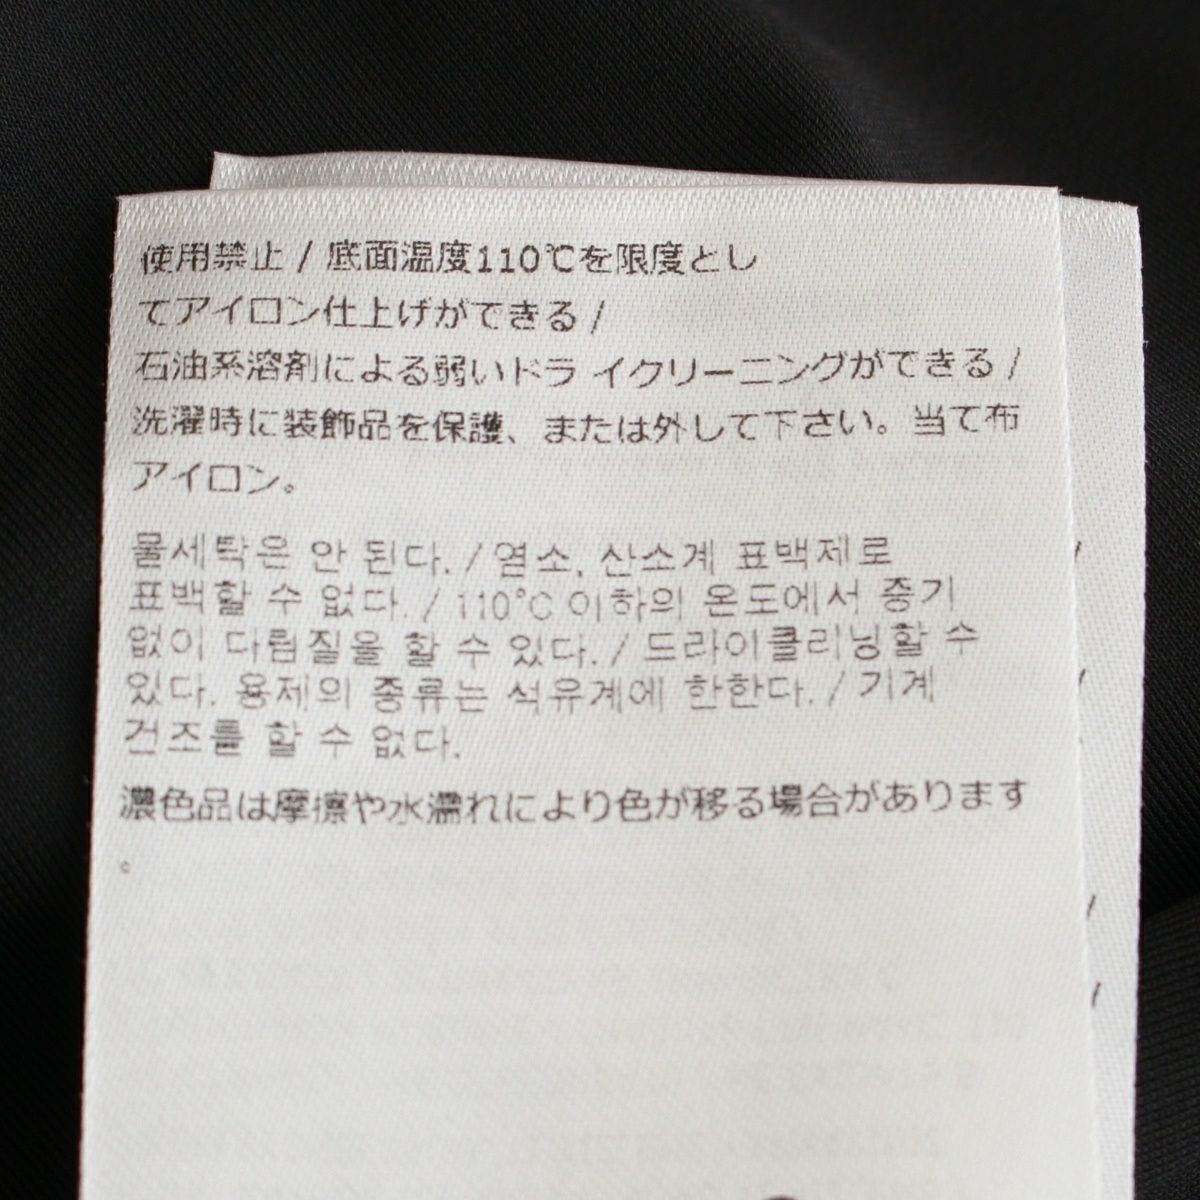 使用禁止 / 底面温度110℃を限度とし
てアイロン仕上げができる /
石油系溶剤による弱いドラ イクリーニングができる /
洗濯時に装飾品を保護、または外して下さい。当て布
アイロン。
물세탁은 안 된다. / 염소, 산소계 표백제로
표백할 수 없다. / 110°C 이하의 온도에서 증기
없이 다림질을 할 수 있다. / 드라이클리닝할 수
있다. 용제의 종류는 석유계에 한한다. / 기계
건조를 할 수 없다.
濃色品は摩擦や水濡れにより色が移る場合があります
。